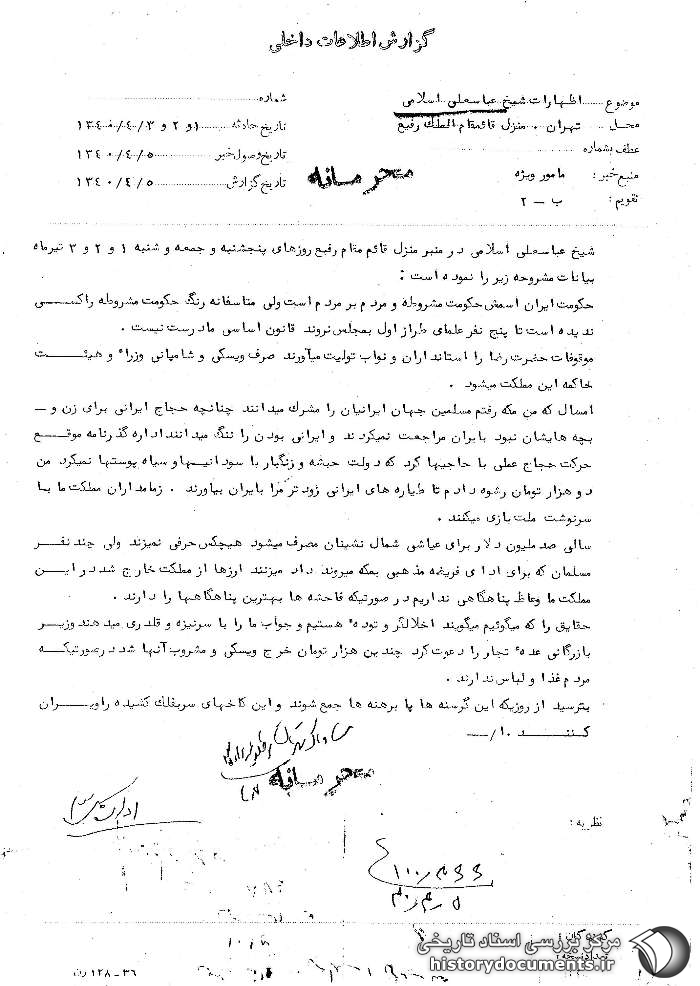 گزارش اطلاعات داخلی
موضوع ..... اظهارات شیخ عباسعلی اسلامی
شماره
محل ... تهران . منزل قائم‌مقام الملک رفیع
تاریخ حادثه ۱ و ۲ و ۳/۴/۱۳۴۰
عطف بشماره
تاریخ وصول خبر ۱۳۴۰/۴/۵
منبع خبر: مامور ویژه
تاریخ گزارش ۱۳۴۰/۴/۵
محرمانه
تقویم: ب - ۲
شیخ عباسعلی اسلامی در منبر منزل قائم مقام رفیع روزهای پنجشنبه و جمعه و شنبه ۱ و ۲ و ۳ تیرماه
بیانات مشروحه زیر را نموده است :
حکومت ایران اسمش حکومت مشروطه و مردم بر مردم است ولی متاسفانه رنگ حکومت مشروطه راکسی
ندیده است تا پنج نفر علمای طراز اول بمجلس نروند قانون اساسی ما درست نیست .
موقوفات حضرت رضا را استانداران و نواب تولیت میآورند صرف ویسکی و شامپانی وزراء و هیئت
حاکمه این مملکت میشود .
امسال که من مکه رفتم مسلمین جهان ایرانیان را مشرک میدانند چنانچه حجاج ایرانی برای زن و -
بچه هایشان نبود بایران مراجعت نمیکردند و ایرانی بودن را ننگ میدانند اداره گذرنامه موقع
حرکت حجاج عملی با حاجیها کرد که دولت حبشه و زنگبار با سودانیها و سیاه پوستها نمیکرد من
دو هزار تومان رشوه دادم تا طیاره های ایرانی زودتر مرا بایران بیاورند . زمامداران مملکت ما با
سرنوشت ملت بازی میکنند .
سالی صد ملیون دلار برای عیاشی شمال نشینان مصرف میشود هیچکس حرفی نمیزند ولی چند نفر
مسلمان که برای ادای فریضه مذهبی بمکه میروند داد میزنند ارزها از مملکت خارج شد در این
مملکت ما وعاظ پناهگاهی نداریم در صورتیکه فاحشه ها بهترین پناهگاهها را دارند .
حقایق را که میگوئیم میگویند اخلالگر و توده هستیم و جواب ما را با سرنیزه و قلدری میدهند وزیر
بازرگانی عده تجار را دعوت کرد چندین هزار تومان خرج ویسکی و مشروب آنها شد در صورتیکه
مردم غذا و لباس ندارند .
بترسید از روزیکه این گرسنه ها پا برهنه ها جمع شوند و این کاخهای سربفلک کشیده را ویران
کنند ۱۰/-
محرمانه
نظریه :
مرکز بررسی اسناد تاریخی
historydocuments.ir